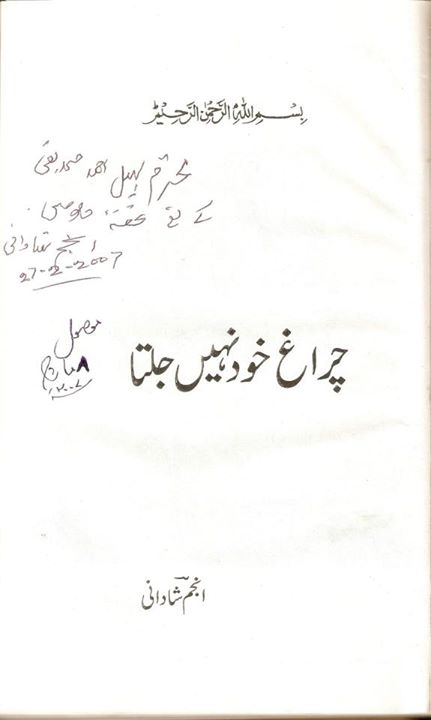 بسم اللہ الرحمن الرحیم
محترم سہیل احمد صدیقی
کے لئے تحفۂ خلوص
انجم شادانی
27-02-2007
موصول
۸ مارچ
۲۰۰۷ء
چراغ خود نہیں جلتا
انجم شادانی